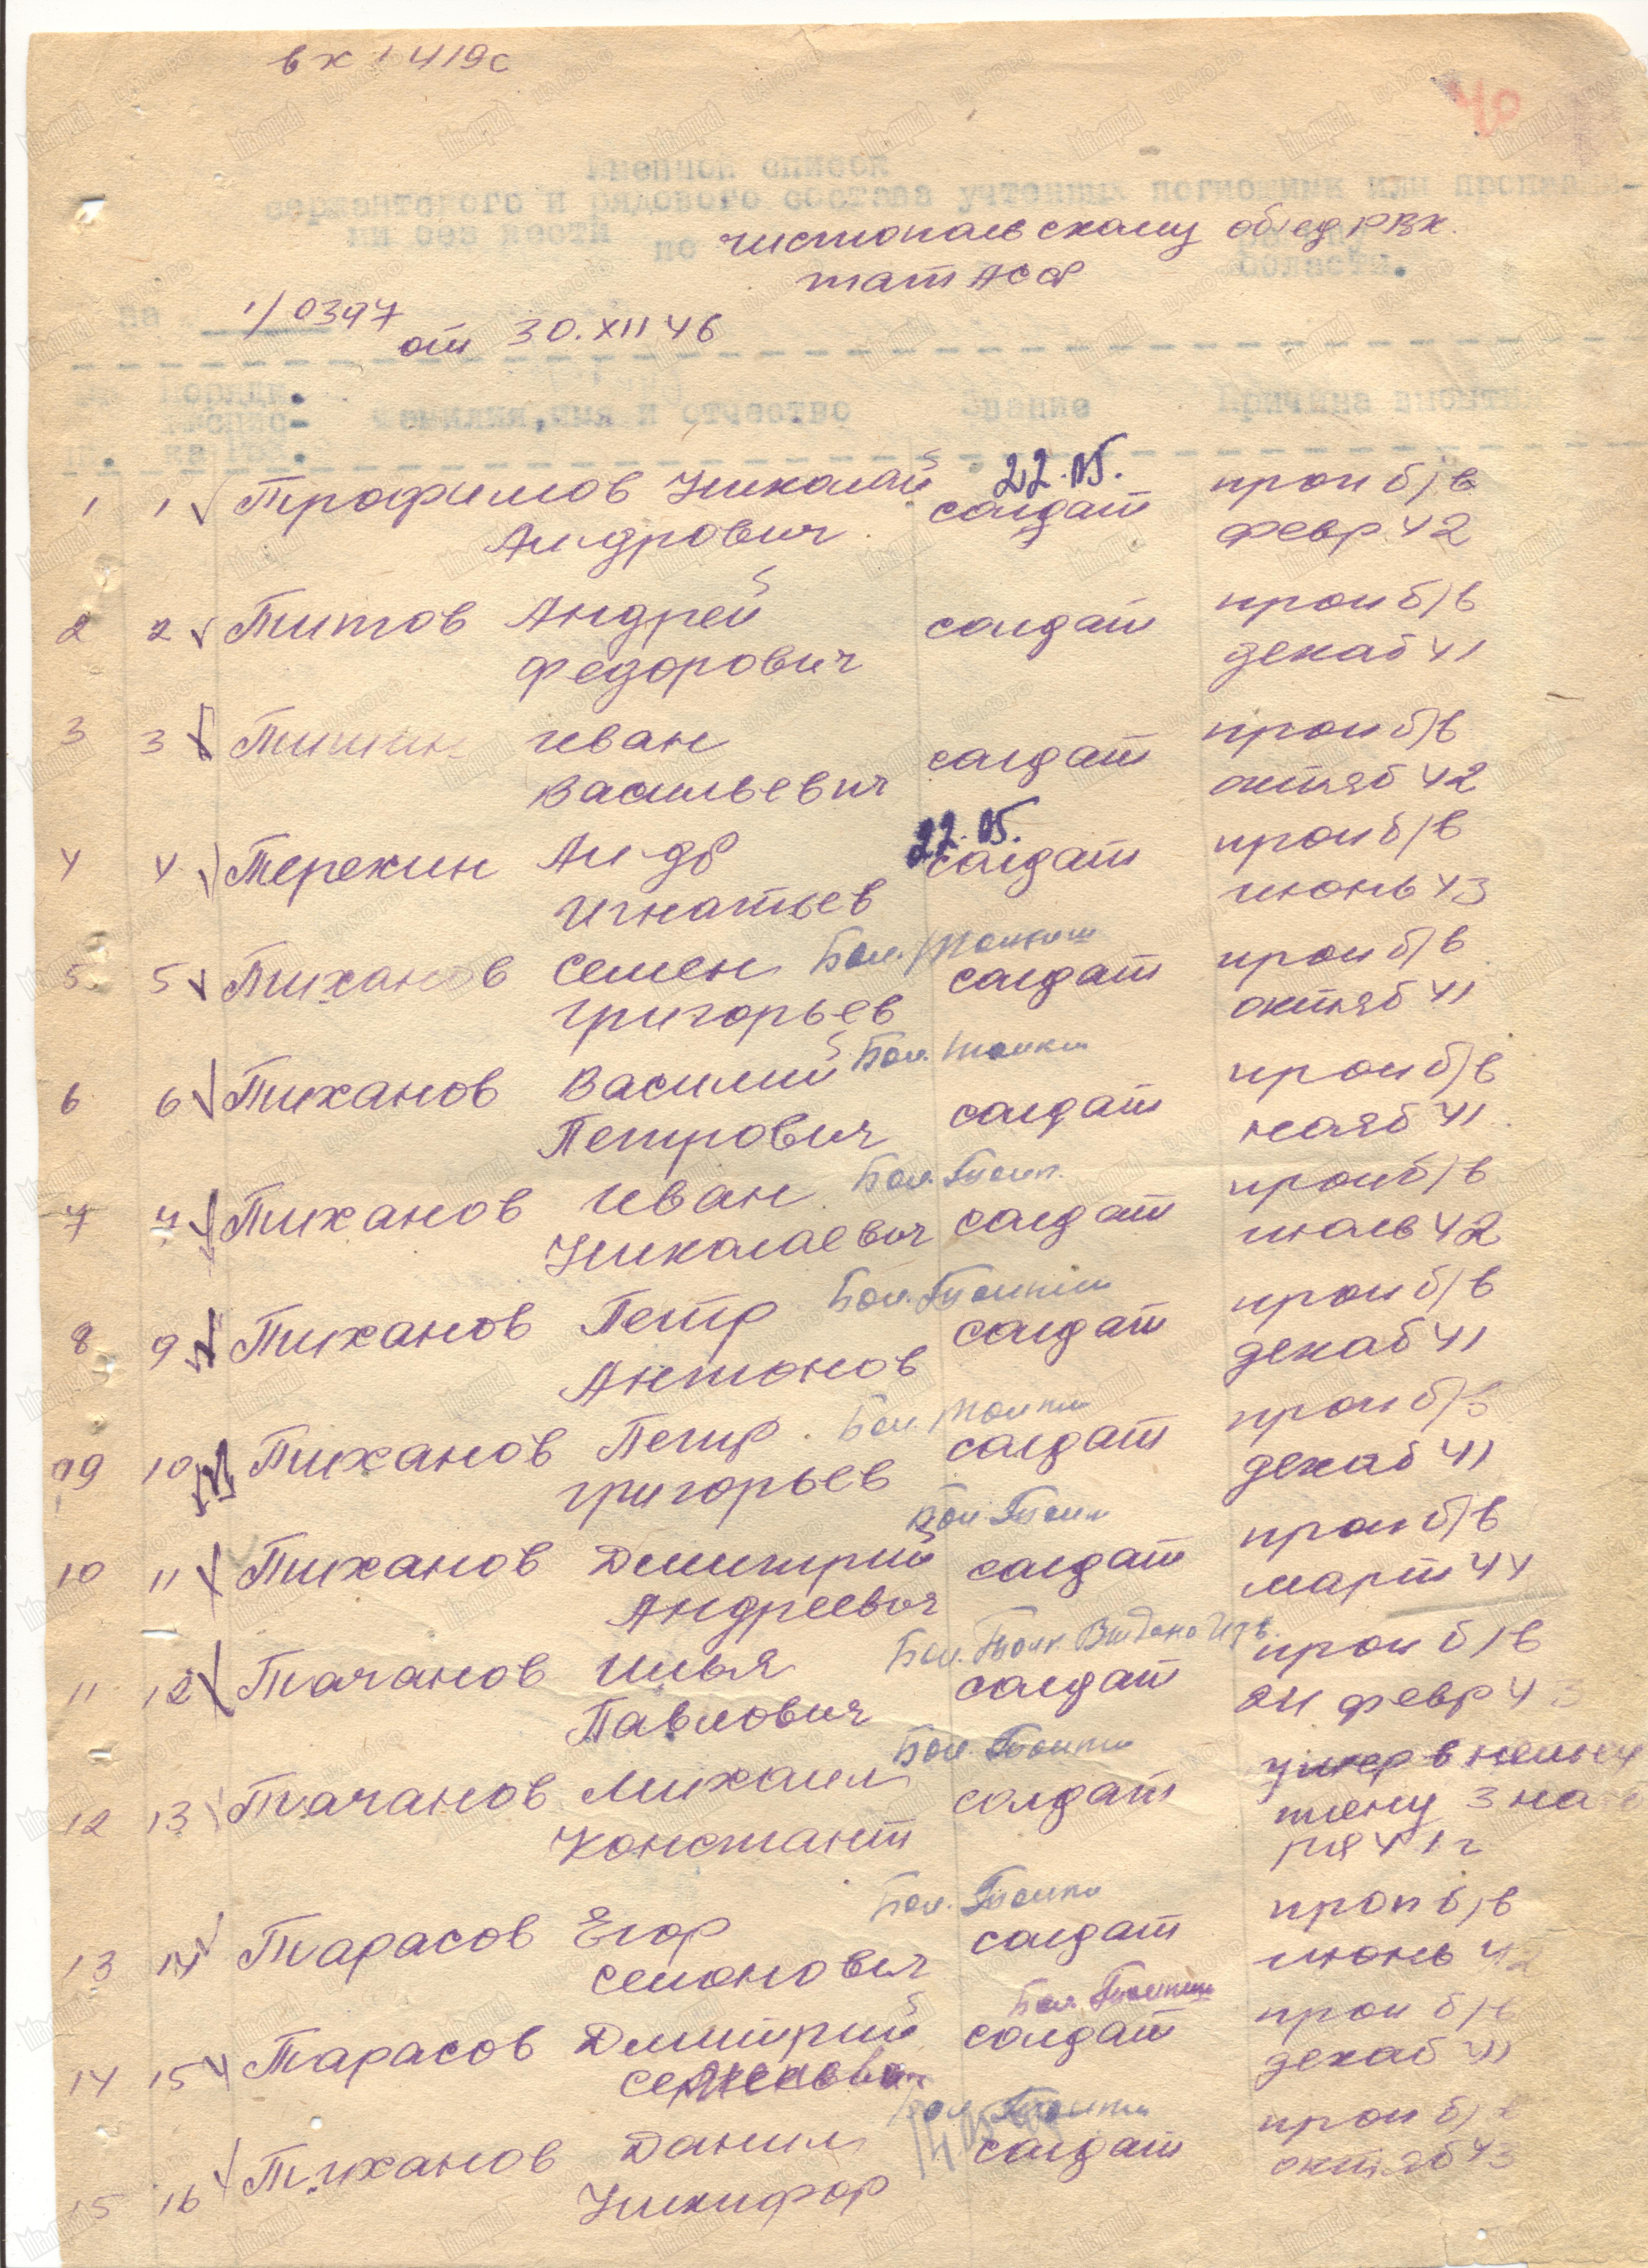 вх 1419с
40
Именной список
сержантского и рядового состава учтенных погибшими или пропавши-
ми без вести по чистопольскому объед РВК.
тат АССР
области.
на 1/0397 от 30.XII 46
поряди.
фамилия, имя и отчество Звание Причина выбыти
22.05.
1 1 Трофимов Николай солдат проп б/в
Ал-дрович февр 42
2 2 Титов Андрей солдат проп б/в
Федорович декаб 41
3 3 Тишин Иван солдат проп б/в
Васильевич октяб 42
22.05.
4 4 Терехин Ал-др солдат проп б/в
Игнатьев июнь 43
Бол. Толкиш
5 5 Тиханов Семен солдат проп б/в
Григорьев октяб 41
Бол. Толкиш
6 6 Тиханов Василий солдат проп б/в
Петрович нояб 41
Бол. Толк.
7 7 Тиханов Иван солдат проп б/в
Николаевич июль 42
Бол. Толкиш
8 9 Тиханов Петр солдат проп б/в
Антонов декаб 41
Бол. Толкиш
9 10 Тиханов Петр солдат проп б/в
Григорьев декаб 41
Бол. Толк
10 11 Тиханов Дмитрий солдат проп б/в
Андреевич март 44
Бол. Толк. Выдано Изв.
11 12 Точанов Илья солдат проп б/в
Павлович 24 февр 43
Бол. Толкиш
12 13 Точанов Михаил солдат умер в немец
Констант плену 3 ноя
ря 41 г
Бол. Толкиш
13 14 Тарасов Егор солдат проп б/в
Семонович июнь 42
Бол. Толкиш
14 15 Тарасов Дмитрий солдат проп б/в
декаб 41
Бол. Толкиш
15 16 Тиханов Данил солдат проп б/в
Никифор октяб 43